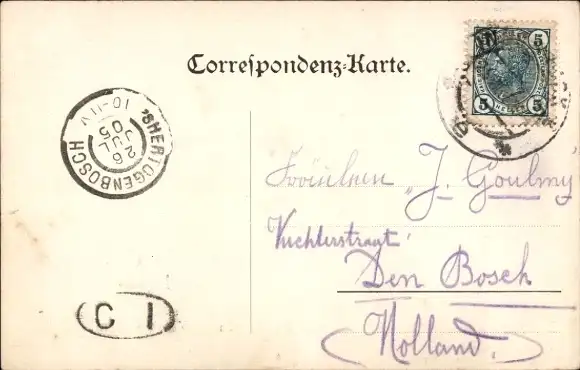 Correspondenz-Karte.
5 5
5 5
'SHERTOGENBOSCH
10-11V
26
JUL
05
Fräulein "J. Goulmy
Vuchterstraat'
Den Bosch
(Holland.)
C I